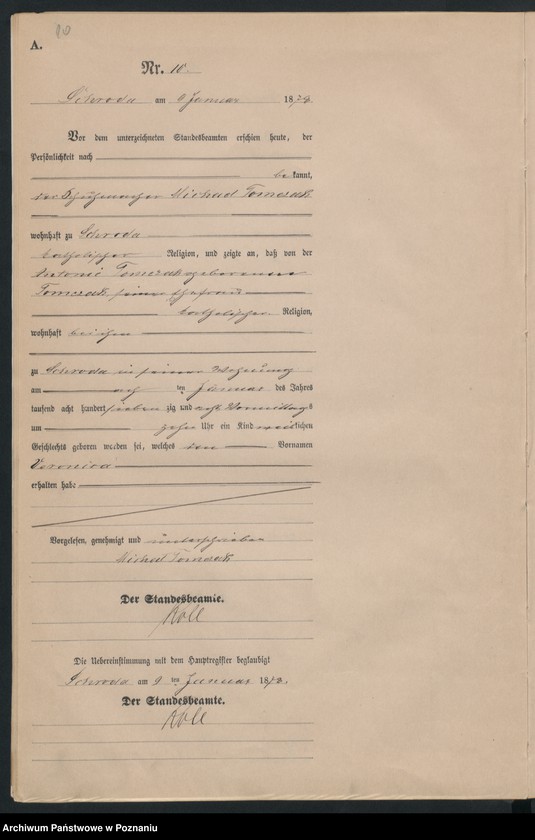 10
A.
Nr. 10.
Schroda am 9 Januar 1878.
Vor dem unterzeichneten Standesbeamten erschien heute, der
Persönlichkeit nach
bekannt,
der Schuhmacher Michael Tomczak
wohnhaft zu Schroda
katholischer Religion, und zeigte an, daß von der
Antonie Tomczak geborenen
Tomczak, seiner Ehefrau
katholischer Religion,
wohnhaft bei ihm
zu Schroda in seiner Wohnung
am ten Januar des Jahres
tausend acht hundert sieben zig und acht Vormittags
um zehn Uhr ein Kind weiblichen
Geschlechts geboren worden sei, welches den Vornamen
Veronica
erhalten habe
Vorgelesen, genehmigt und unterschrieben
Michael Tomczak
Der Standesbeamte.
Die Uebereinstimmung mit dem Hauptregister beglaubigt
Schroda am 9 ten Januar 1878.
Der Standesbeamte.
Archiwum Państwowe w Poznaniu